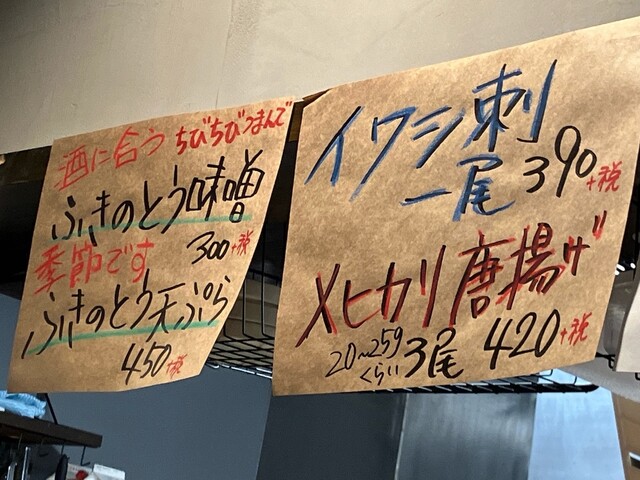 酒に合う ちびちびつまんで
ふきのとう味噌
300+税
季節です
ふきのとう天ぷら
450+税
イワシ刺
一尾 390+税
メヒカリ唐揚げ
20〜25g
くらい 3尾 420+税